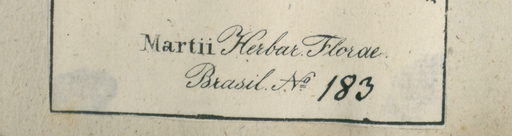 Martii Herbar. Florae
Brasil. No 183